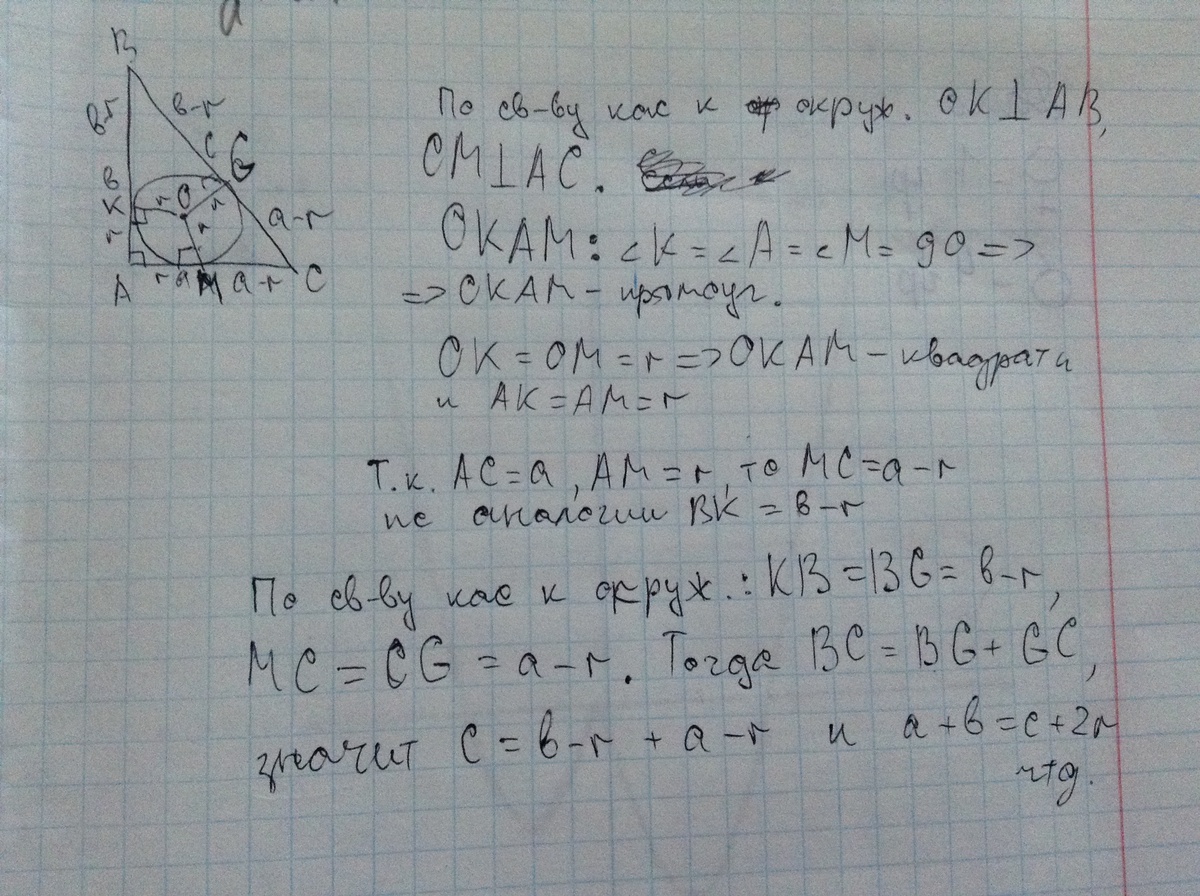 По св-ву кас к окруж. OK⊥AB,
OM⊥AC.
OKAM: ∠K=∠A=∠M=90 =>
=> OKAM - прямоуг.
OK=OM=r => OKAM - квадрат и
и AK=AM=r
Т.к. AC=a, AM=r, то MC=a-r
по аналогии BK=в-r
По св-ву кас к окруж.: KB=BG=в-r,
MC=CG=a-r. Тогда BC=BG+GC,
значит c=в-r+a-r и a+в=c+2r
чтд.
B
в-r
в-r
c
G
в
K
r
O
r
r
r
a-r
A
r
a
M
a-r
C